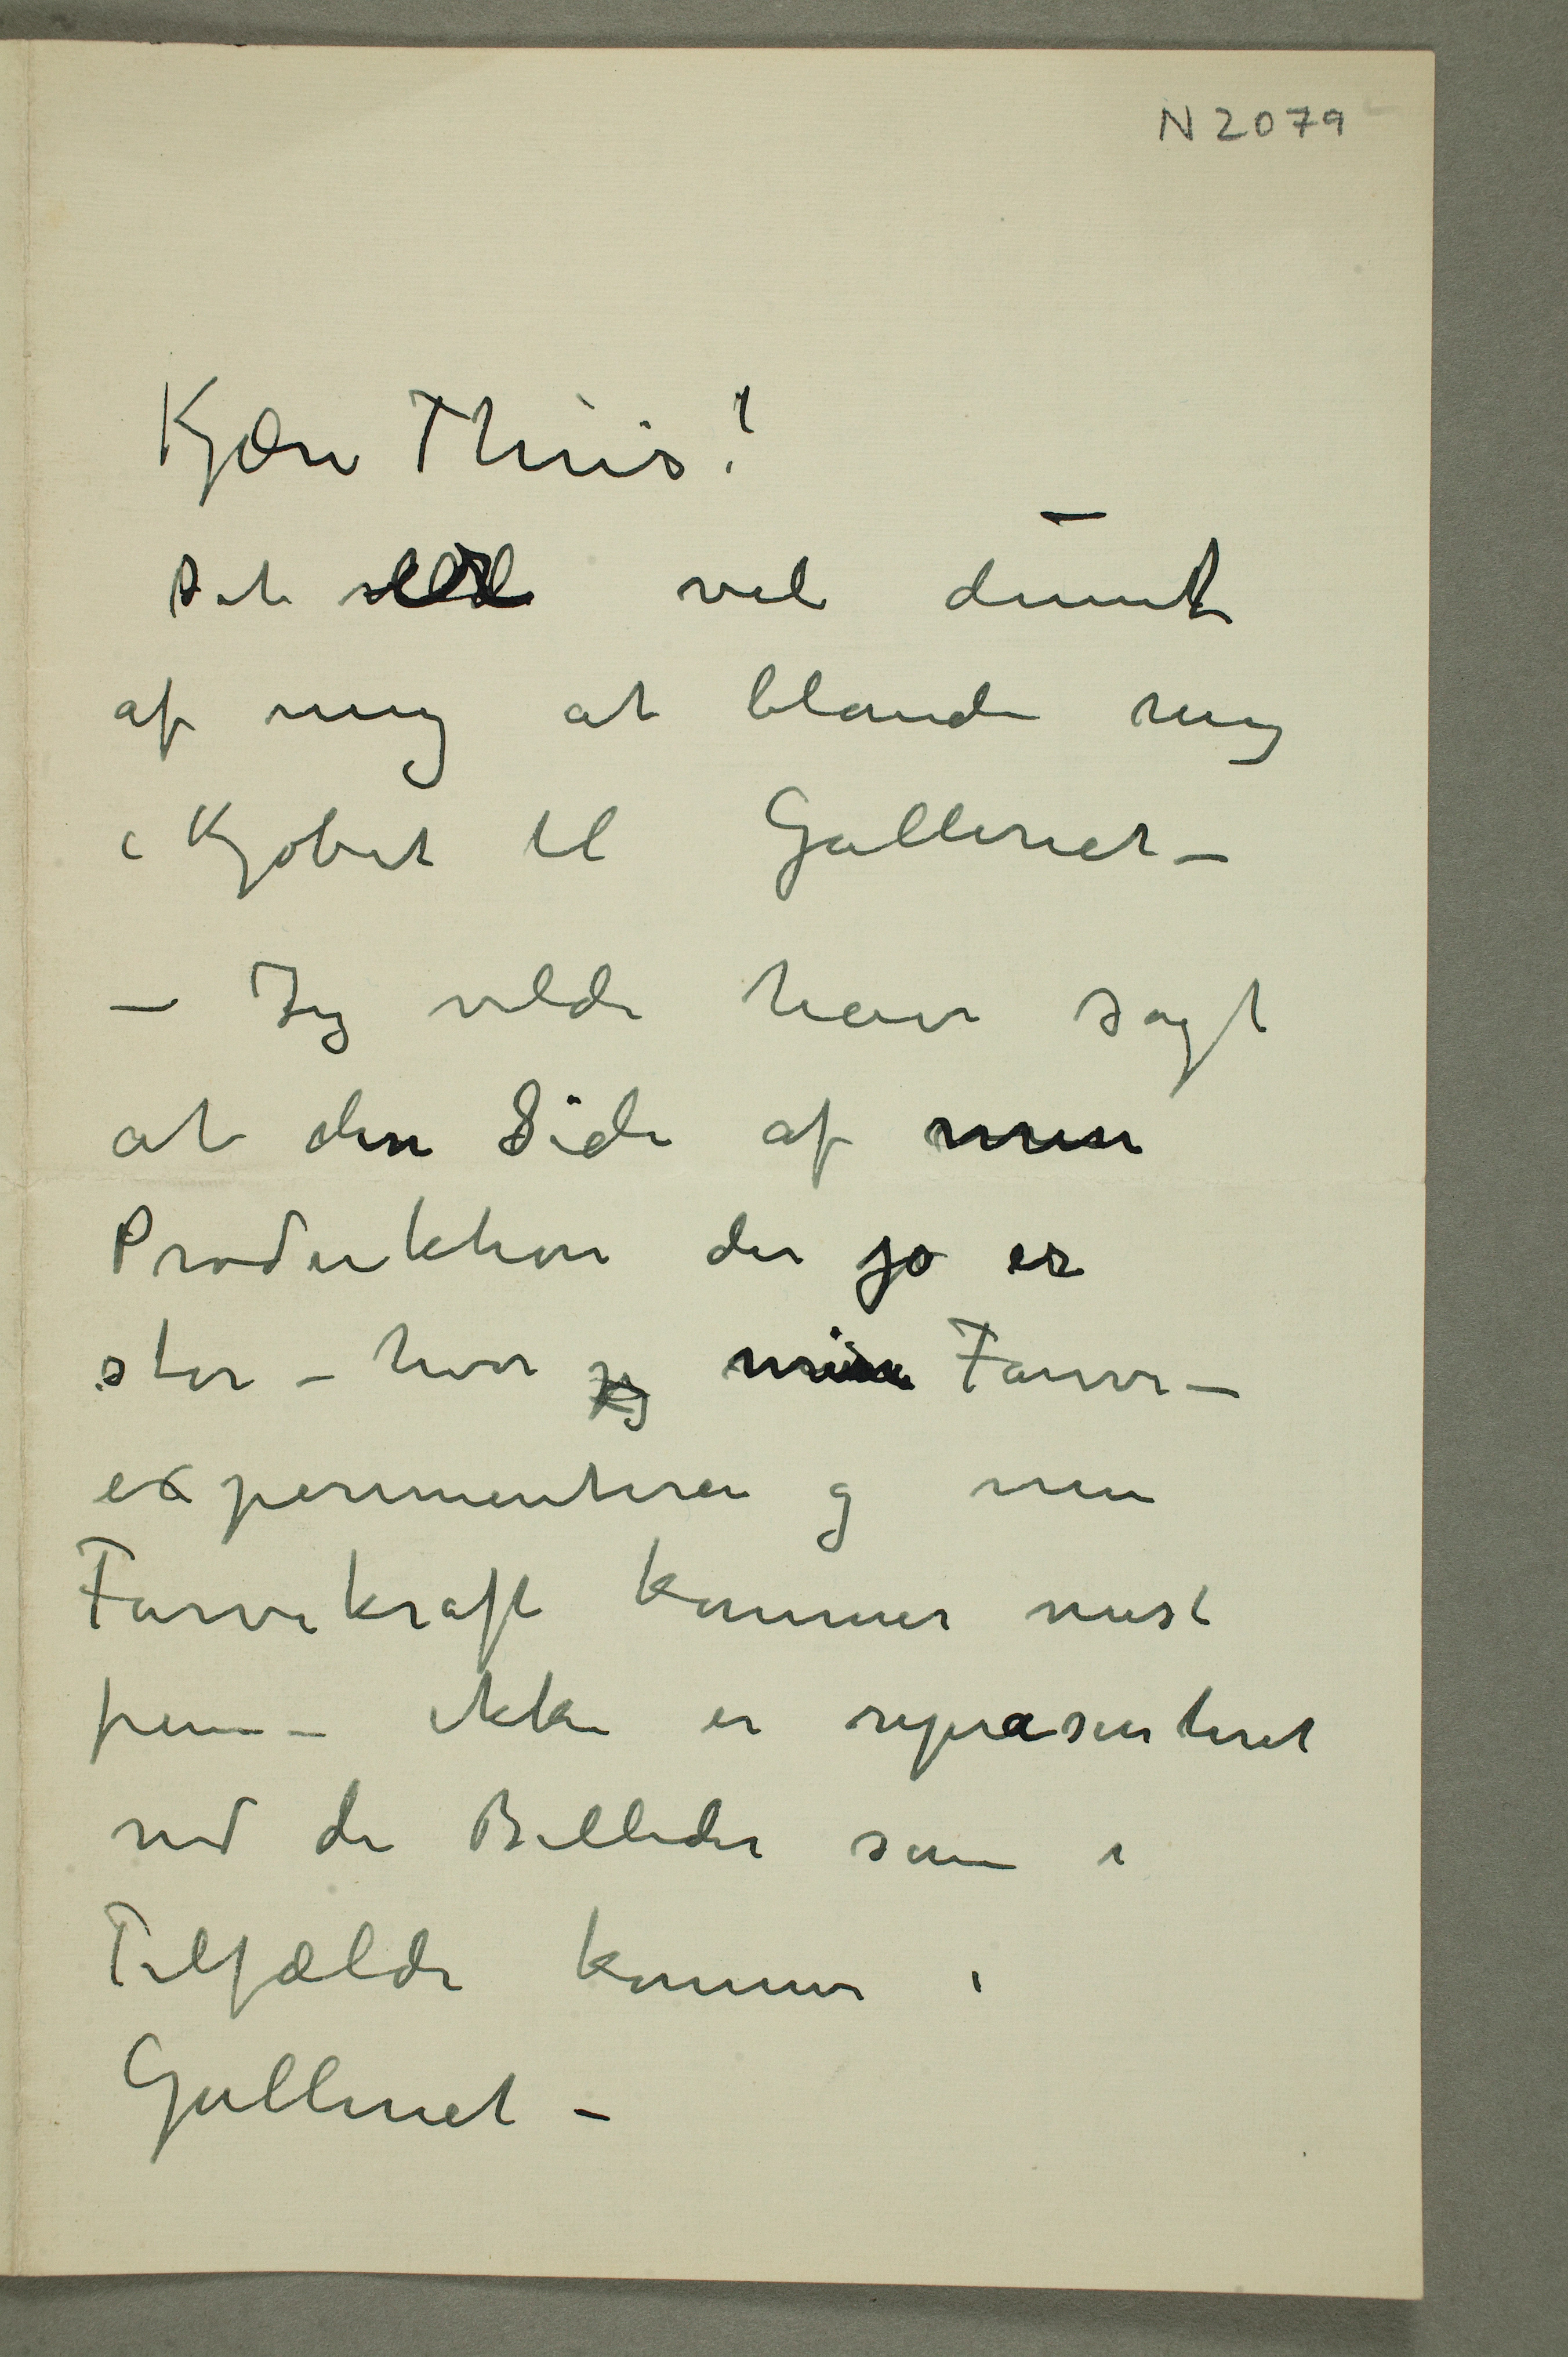 N 2079
Kjære Thiis!
Det vel dumt
af mig at blande mig
i Kjøbet til Galleriet –
– Jeg vilde have sagt
at den Side af min
Produktion der jo er
stor – hvor jeg min Farve-
experimenteren og min
Farvekraft kommer mest
frem – ikke er repræsenteret
ved de Billeder som i
Tilfælde kommer i
Galleriet –